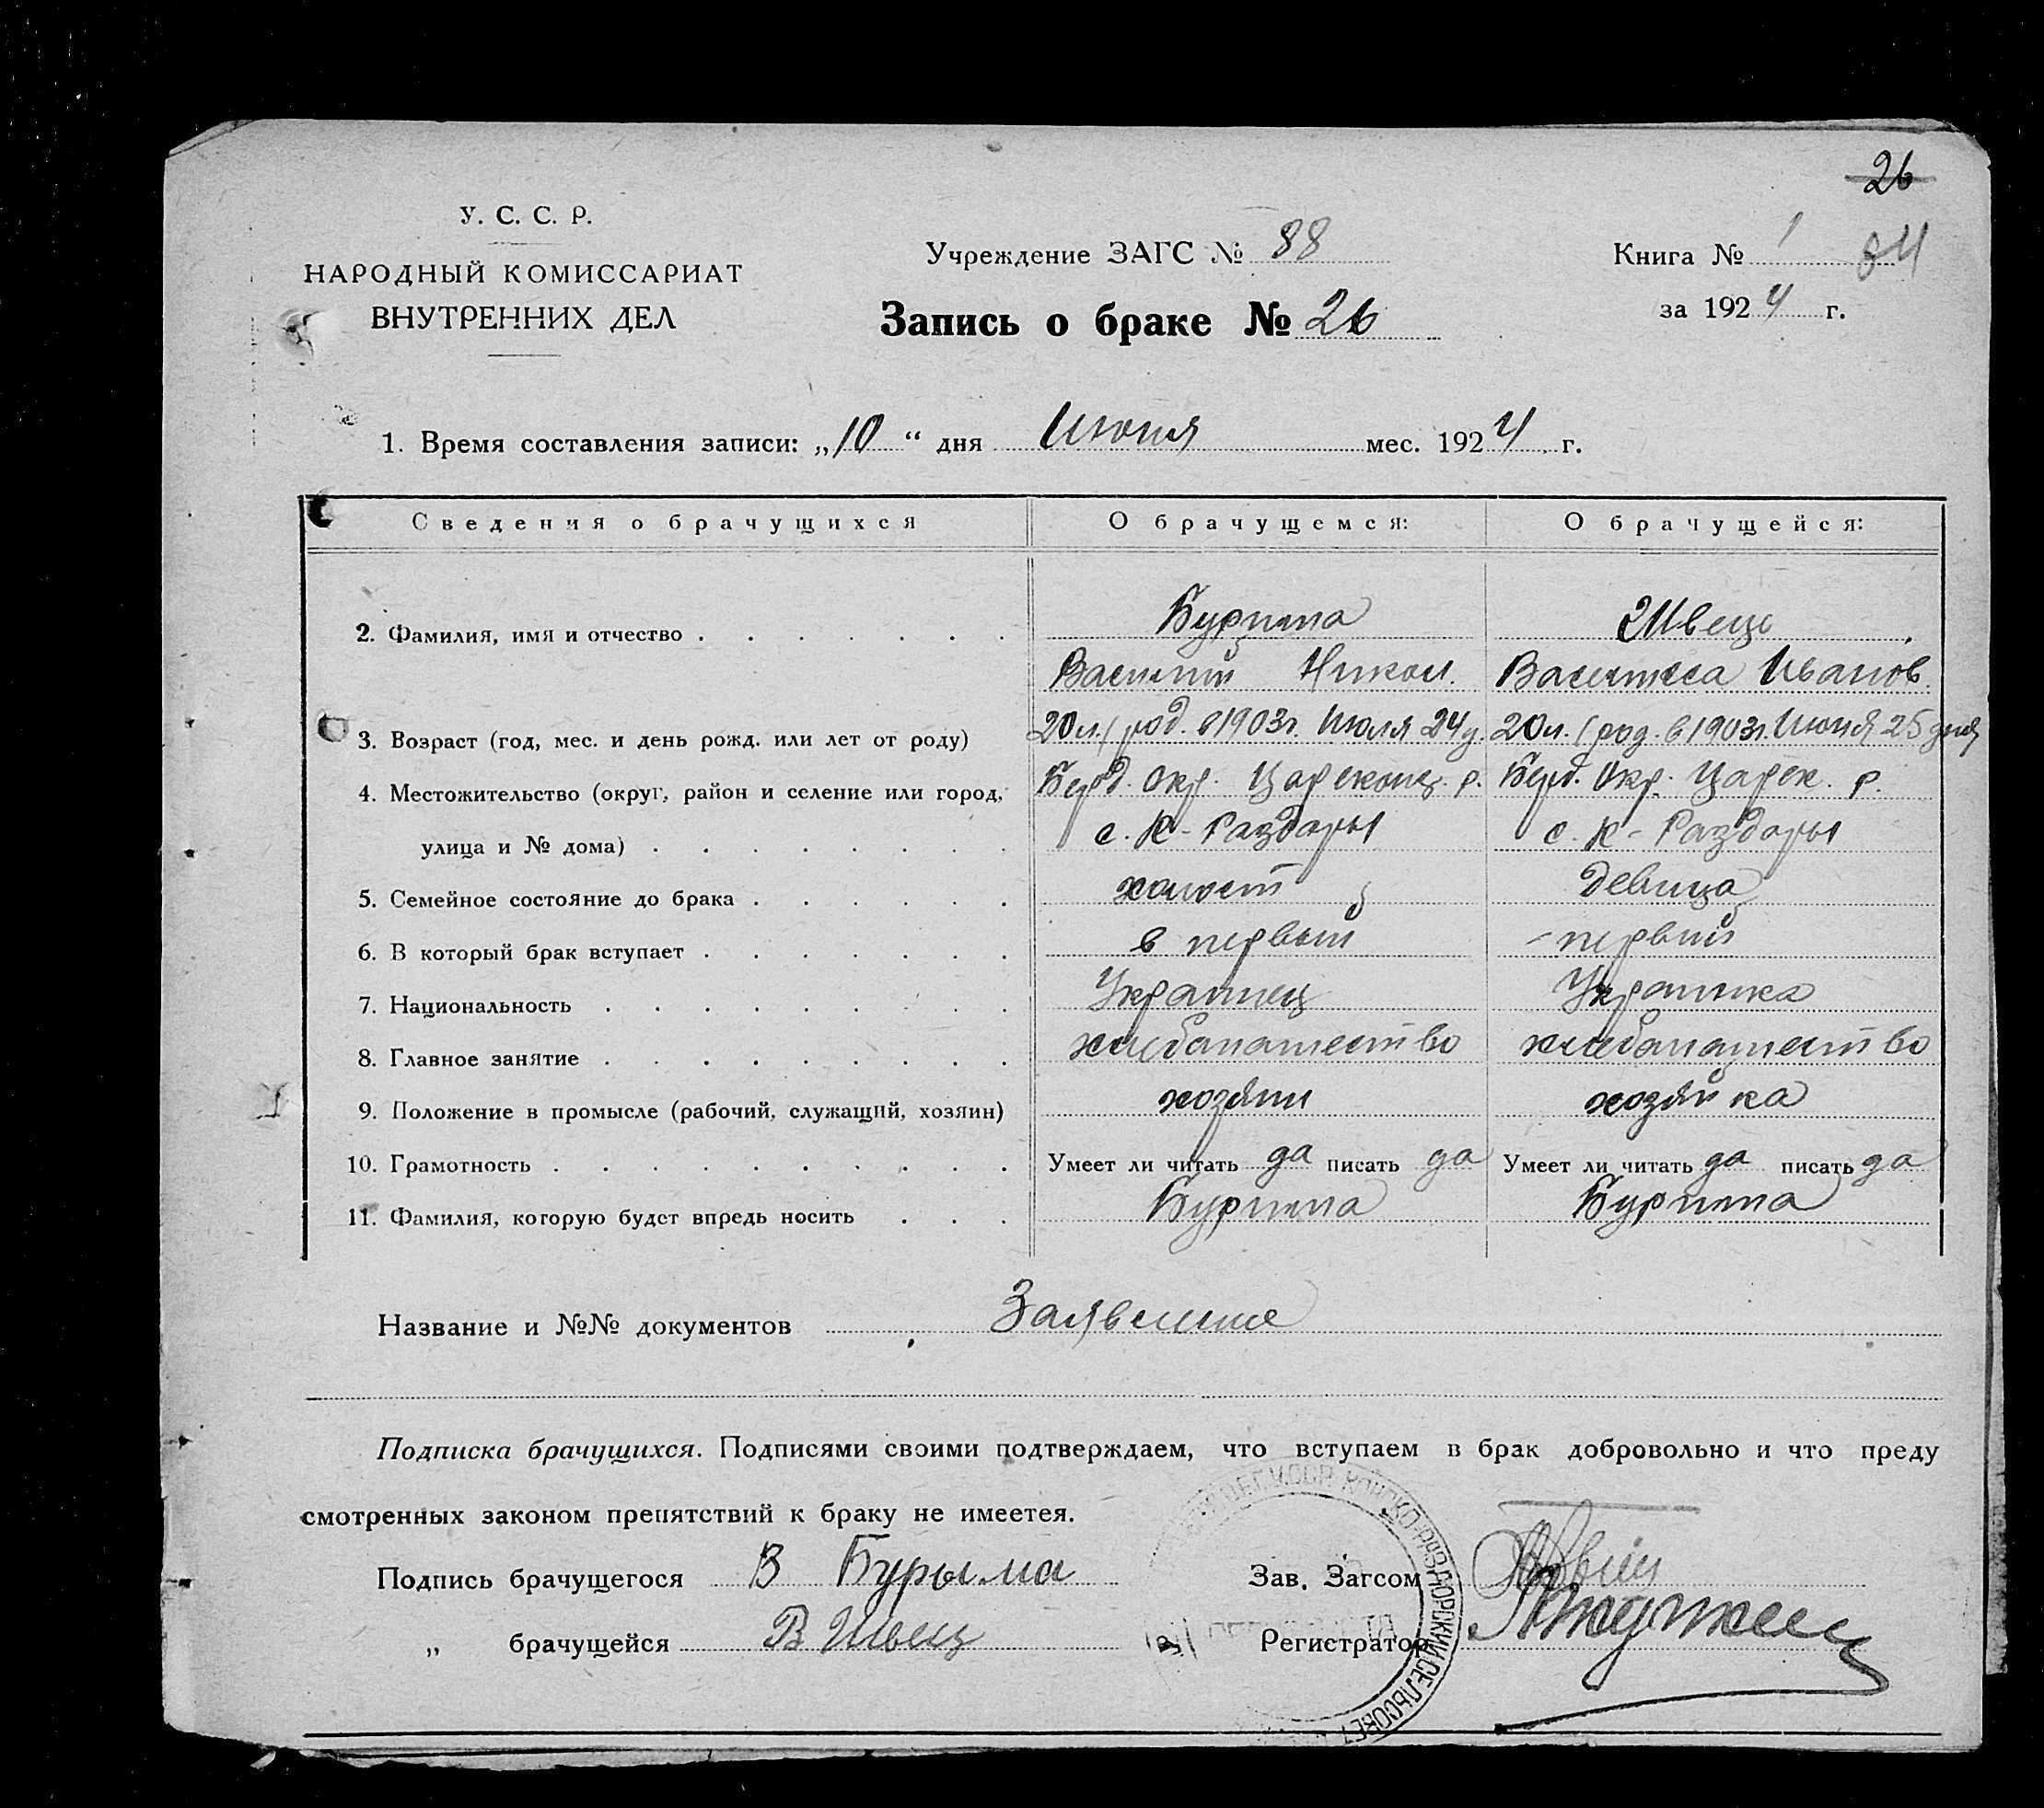 26
У. С. С. Р.
НАРОДНЫЙ КОМИССАРИАТ
ВНУТРЕННИХ ДЕЛ
Учреждение ЗАГС № 88
Книга № 1 84
Запись о браке № 26
за 1924 г.
1. Время составления записи: „10“ дня Июня мес. 1924 г.
Сведения о брачущихся О брачущемся: О брачущейся:
2. Фамилия, имя и отчество Бурима Швець
Василий Никол. Василиса Иванов.
3. Возраст (год, мес. и день рожд. или лет от роду) 20 л. (род. в 1903 г. Июля 24 д. 20 л. (род. в 1903 г. Июня 25 дня
4. Местожительство (округ, район и селение или город, Берд. Окр. Цареконст. р. Берд. Окр. Царек. р.
улица и № дома) с. К-Раздоры с. К-Раздоры
5. Семейное состояние до брака холост девица
6. В который брак вступает в первый - первый
7. Национальность Украинец Украинка
8. Главное занятие хлебопашество хлебопашество
9. Положение в промысле (рабочий, служащий, хозяин) хозяин хозяйка
10. Грамотность Умеет ли читать да писать да Умеет ли читать да писать да
11. Фамилия, которую будет впредь носить Бурима Бурима
Название и №№ документов Заявление
Подписка брачущихся. Подписями своими подтверждаем, что вступаем в брак добровольно и что преду
смотренных законом препятствий к браку не имеется.
Подпись брачущегося В Бурыма Зав. Загсом
„ брачущейся В Швец Регистратор
СЕЛЬСОВЕТ